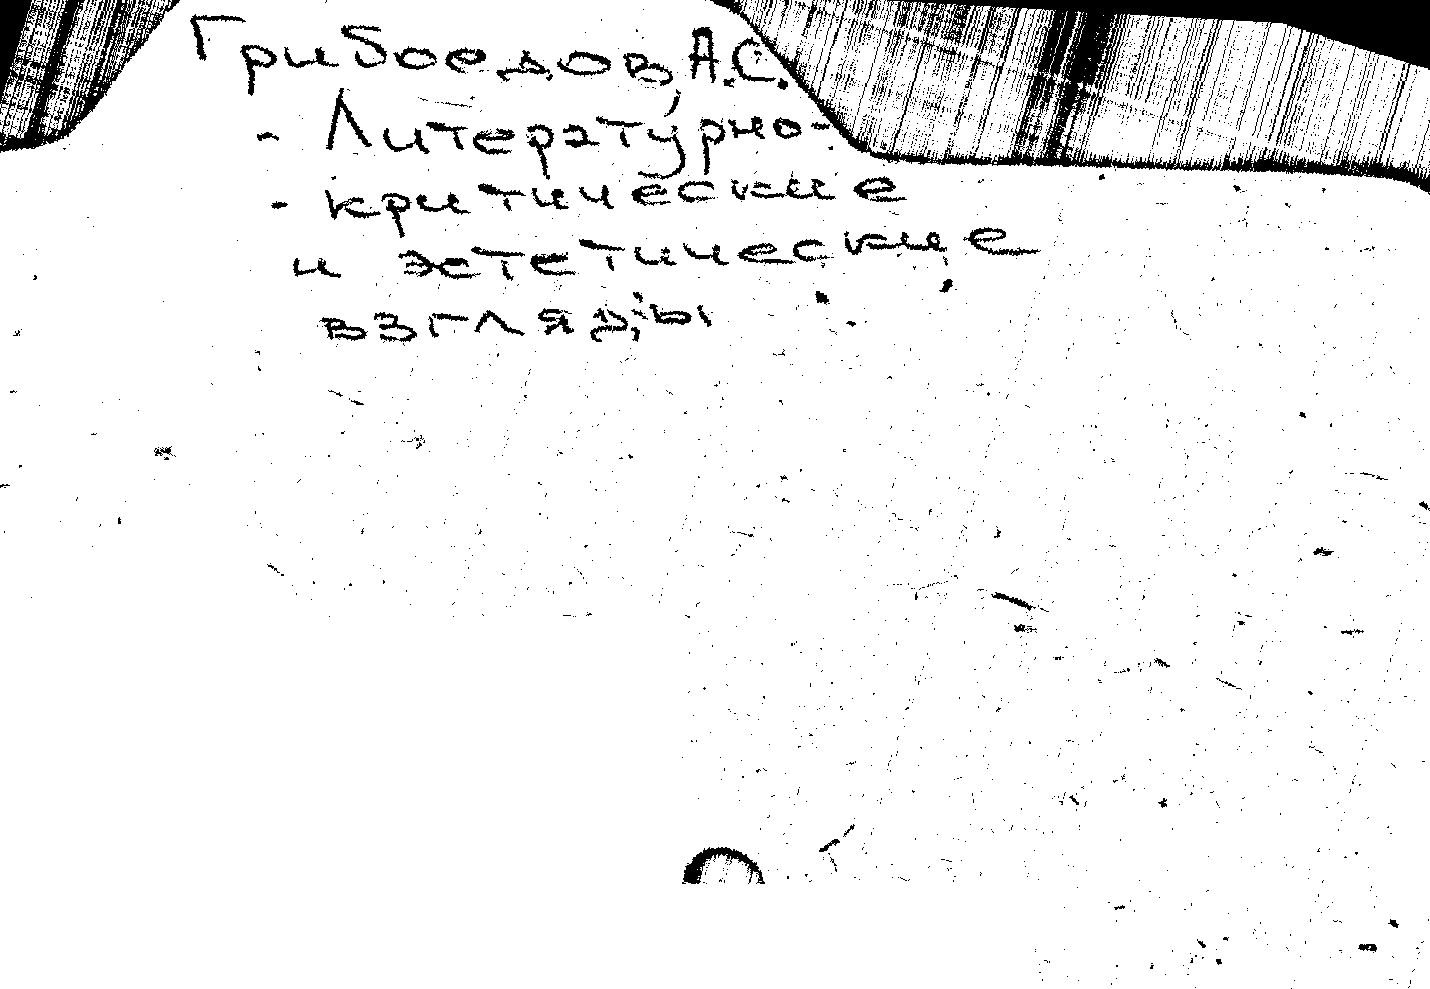 Грибоедов, А.С.
- Литературно-
- критические
и эстетические
взгляды